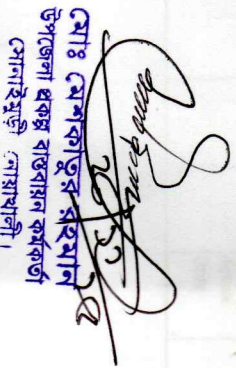 মোঃ মেশকাতুর রহমান
উপজেলা প্রকল্প বাস্তবায়ন কর্মকর্তা
সোনাইমুড়ী নোয়াখালী।